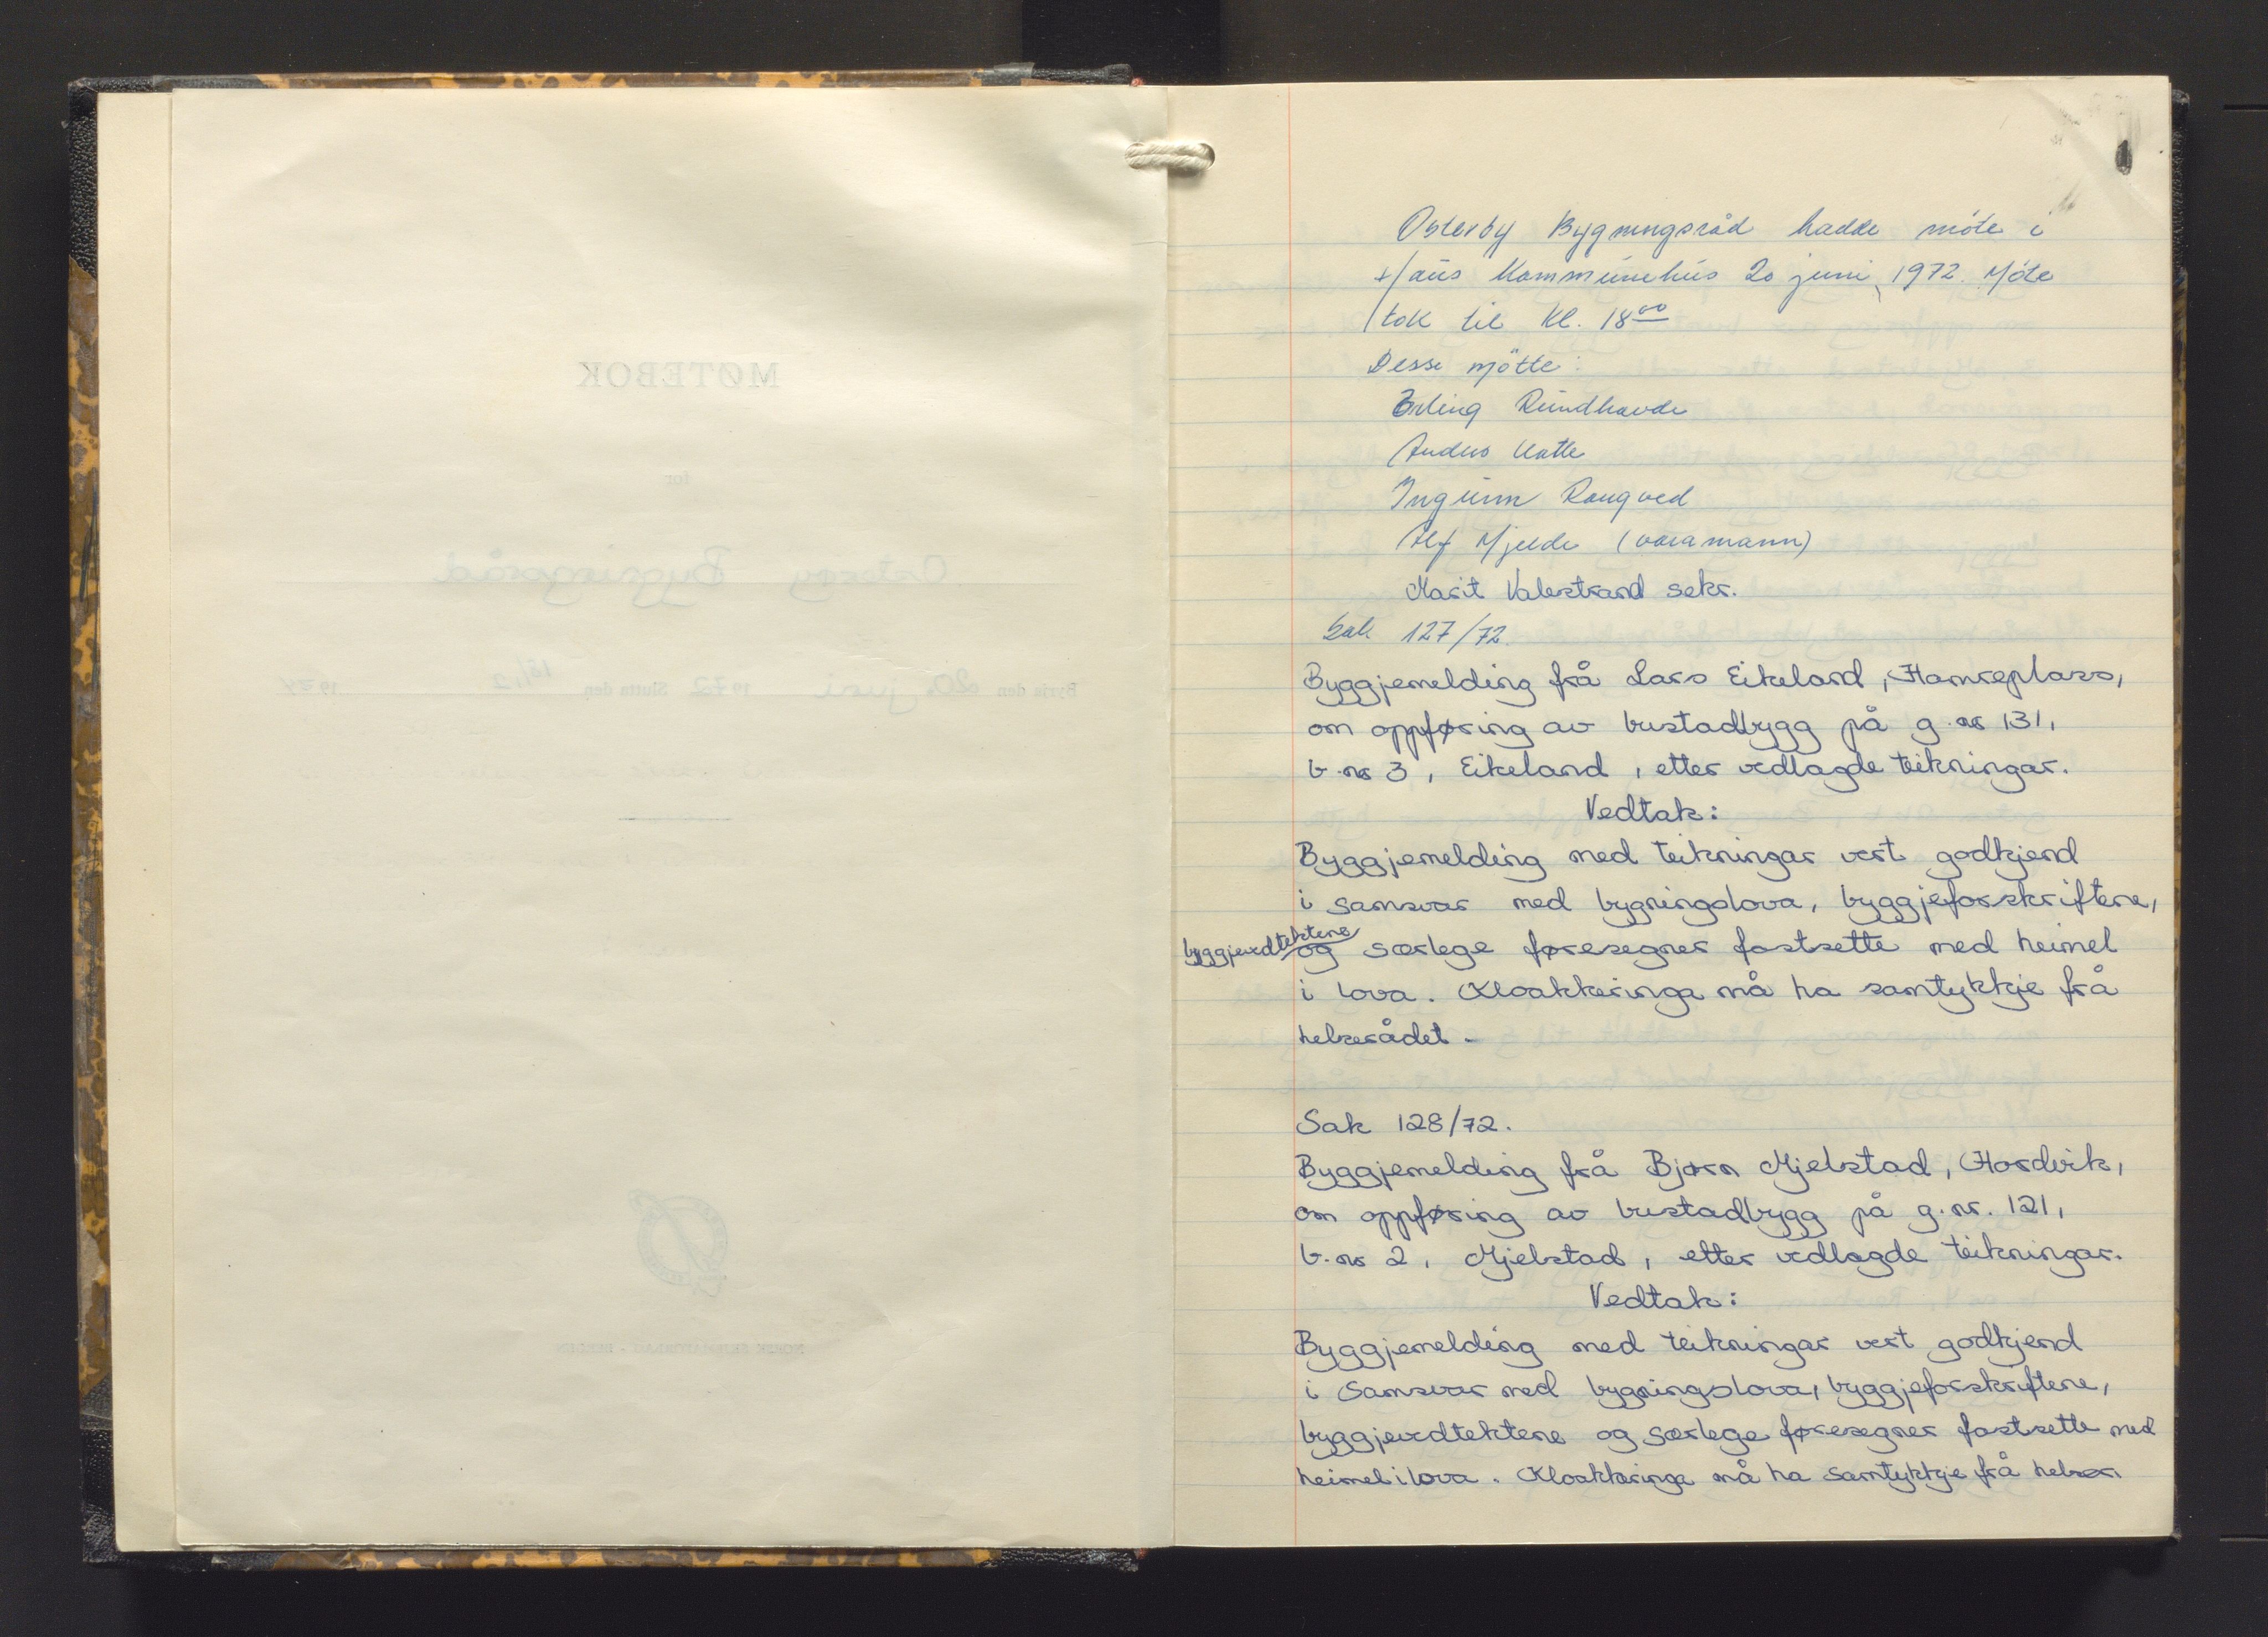 MØTEBOK
for
Osterøy Bygningsråd
Byrja den 20. juni 1972 Slutta den 13/2 1974
Osterøy Bygningsråd hadde møte i
Haus Kommunehus 20 juni, 1972. Møte
tok til kl. 18⁰⁰
Desse møtte:
Erling Rundhovde
Anders Hatle
Ingunn Raugved
Alf Mjelde (varamann)
Marit Valestrand sekr.
Sak 127/72.
Byggjemelding frå Lars Eikeland, Hamreplass,
om oppføring av bustadbygg på g.nr 131,
b.nr 3, Eikeland, etter vedlagde teikningar.
Vedtak:
Byggjemelding med teikningar vert godkjend
i samsvar med bygningslova, byggjeforskriftene,
byggjevedtektene og særlege føresegner fastsette med heimel
i lova. Kloakkeringa må ha samtykkje frå
helserådet.
Sak 128/72.
Byggjemelding frå Bjørn Mjelstad, Hordvik,
om oppføring av bustadbygg på g.nr. 121,
b.nr 2, Mjelstad, etter vedlagde teikningar.
Vedtak:
Byggjemelding med teikningar vert godkjend
i samsvar med bygningslova, byggjeforskriftene,
byggjevedtektene og særlege føresegner fastsette med
heimel i lova. Kloakkeringa må ha samtykkje frå helser